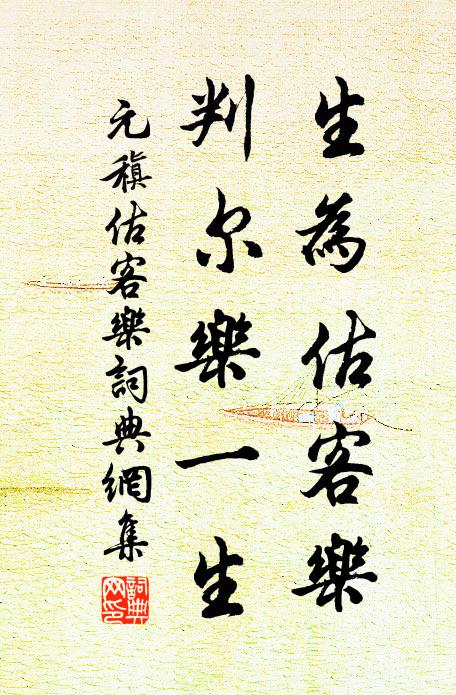 生為估客樂
判尔樂一生
元稹估客樂詞典網集
詞典網印